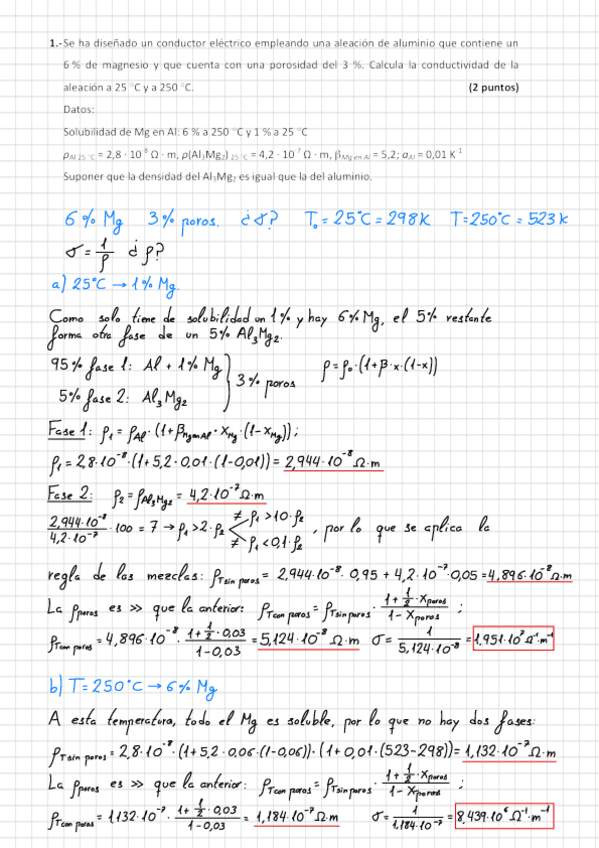 1.- Se ha diseñado un conductor eléctrico empleando una aleación de aluminio que contiene un
6 % de magnesio y que cuenta con una porosidad del 3 %. Calcula la conductividad de la
aleación a 25 °C y a 250 °C. (2 puntos)
Datos:
Solubilidad de Mg en Al: 6 % a 250 °C y 1 % a 25 °C
ρAl 25 °C = 2,8 · 10⁻⁸ Ω · m, ρ(Al₃Mg₂) 25 °C = 4,2 · 10⁻⁷ Ω · m, βMg en Al = 5,2; αAl = 0,01 K⁻¹
Suponer que la densidad del Al₃Mg₂ es igual que la del aluminio.
6% Mg 3% poros. ¿σ? T₀ = 25°C = 298K T = 250°C = 523K
σ = 1/ρ ¿ρ?
a) 25°C → 1% Mg.
Como solo tiene de solubilidad un 1% y hay 6% Mg, el 5% restante
forma otra fase de un 5% Al₃Mg₂.
95% fase 1: Al + 1% Mg
5% fase 2: Al₃Mg₂ } 3% poros ρ = ρ₀·(1+β·x·(1-x))
Fase 1: ρ₁ = ρAl · (1+βMg en Al · XMg · (1-XMg));
ρ₁ = 2,8·10⁻⁸·(1+5,2·0,01·(1-0,01)) = 2,944·10⁻⁸ Ω·m
Fase 2: ρ₂ = ρAl₃Mg₂ = 4,2·10⁻⁷ Ω·m
2,944·10⁻⁸/4,2·10⁻⁷ · 100 = 7 → ρ₁>2·ρ₂ < ≠ ρ₁>10·ρ₂ ≠ ρ₁<0,1·ρ₂ , por lo que se aplica la
regla de las mezclas: ρT sin poros = 2,944·10⁻⁸· 0,95 + 4,2·10⁻⁷·0,05 = 4,896·10⁻⁸ Ω·m
La ρporos es >> que la anterior: ρT con poros = ρT sin poros · (1+½·Xporos)/(1-Xporos) ;
ρT con poros = 4,896·10⁻⁸ · (1+½·0,03)/(1-0,03) = 5,124·10⁻⁸ Ω·m σ = 1/(5,124·10⁻⁸) = 1,951·10⁷ Ω⁻¹·m⁻¹
b) T = 250°C → 6% Mg
A esta temperatura, todo el Mg es soluble, por lo que no hay dos fases:
ρT sin poros = 2,8·10⁻⁸·(1+5,2·0,06·(1-0,06))·(1+0,01·(523-298)) = 1,132·10⁻⁷ Ω·m
La ρporos es >> que la anterior: ρT con poros = ρT sin poros · (1+½·Xporos)/(1-Xporos) ;
ρT con poros = 1,132·10⁻⁷ · (1+½·0,03)/(1-0,03) = 1,184·10⁻⁷ Ω·m σ = 1/(1,184·10⁻⁷) = 8,439·10⁶ Ω⁻¹·m⁻¹